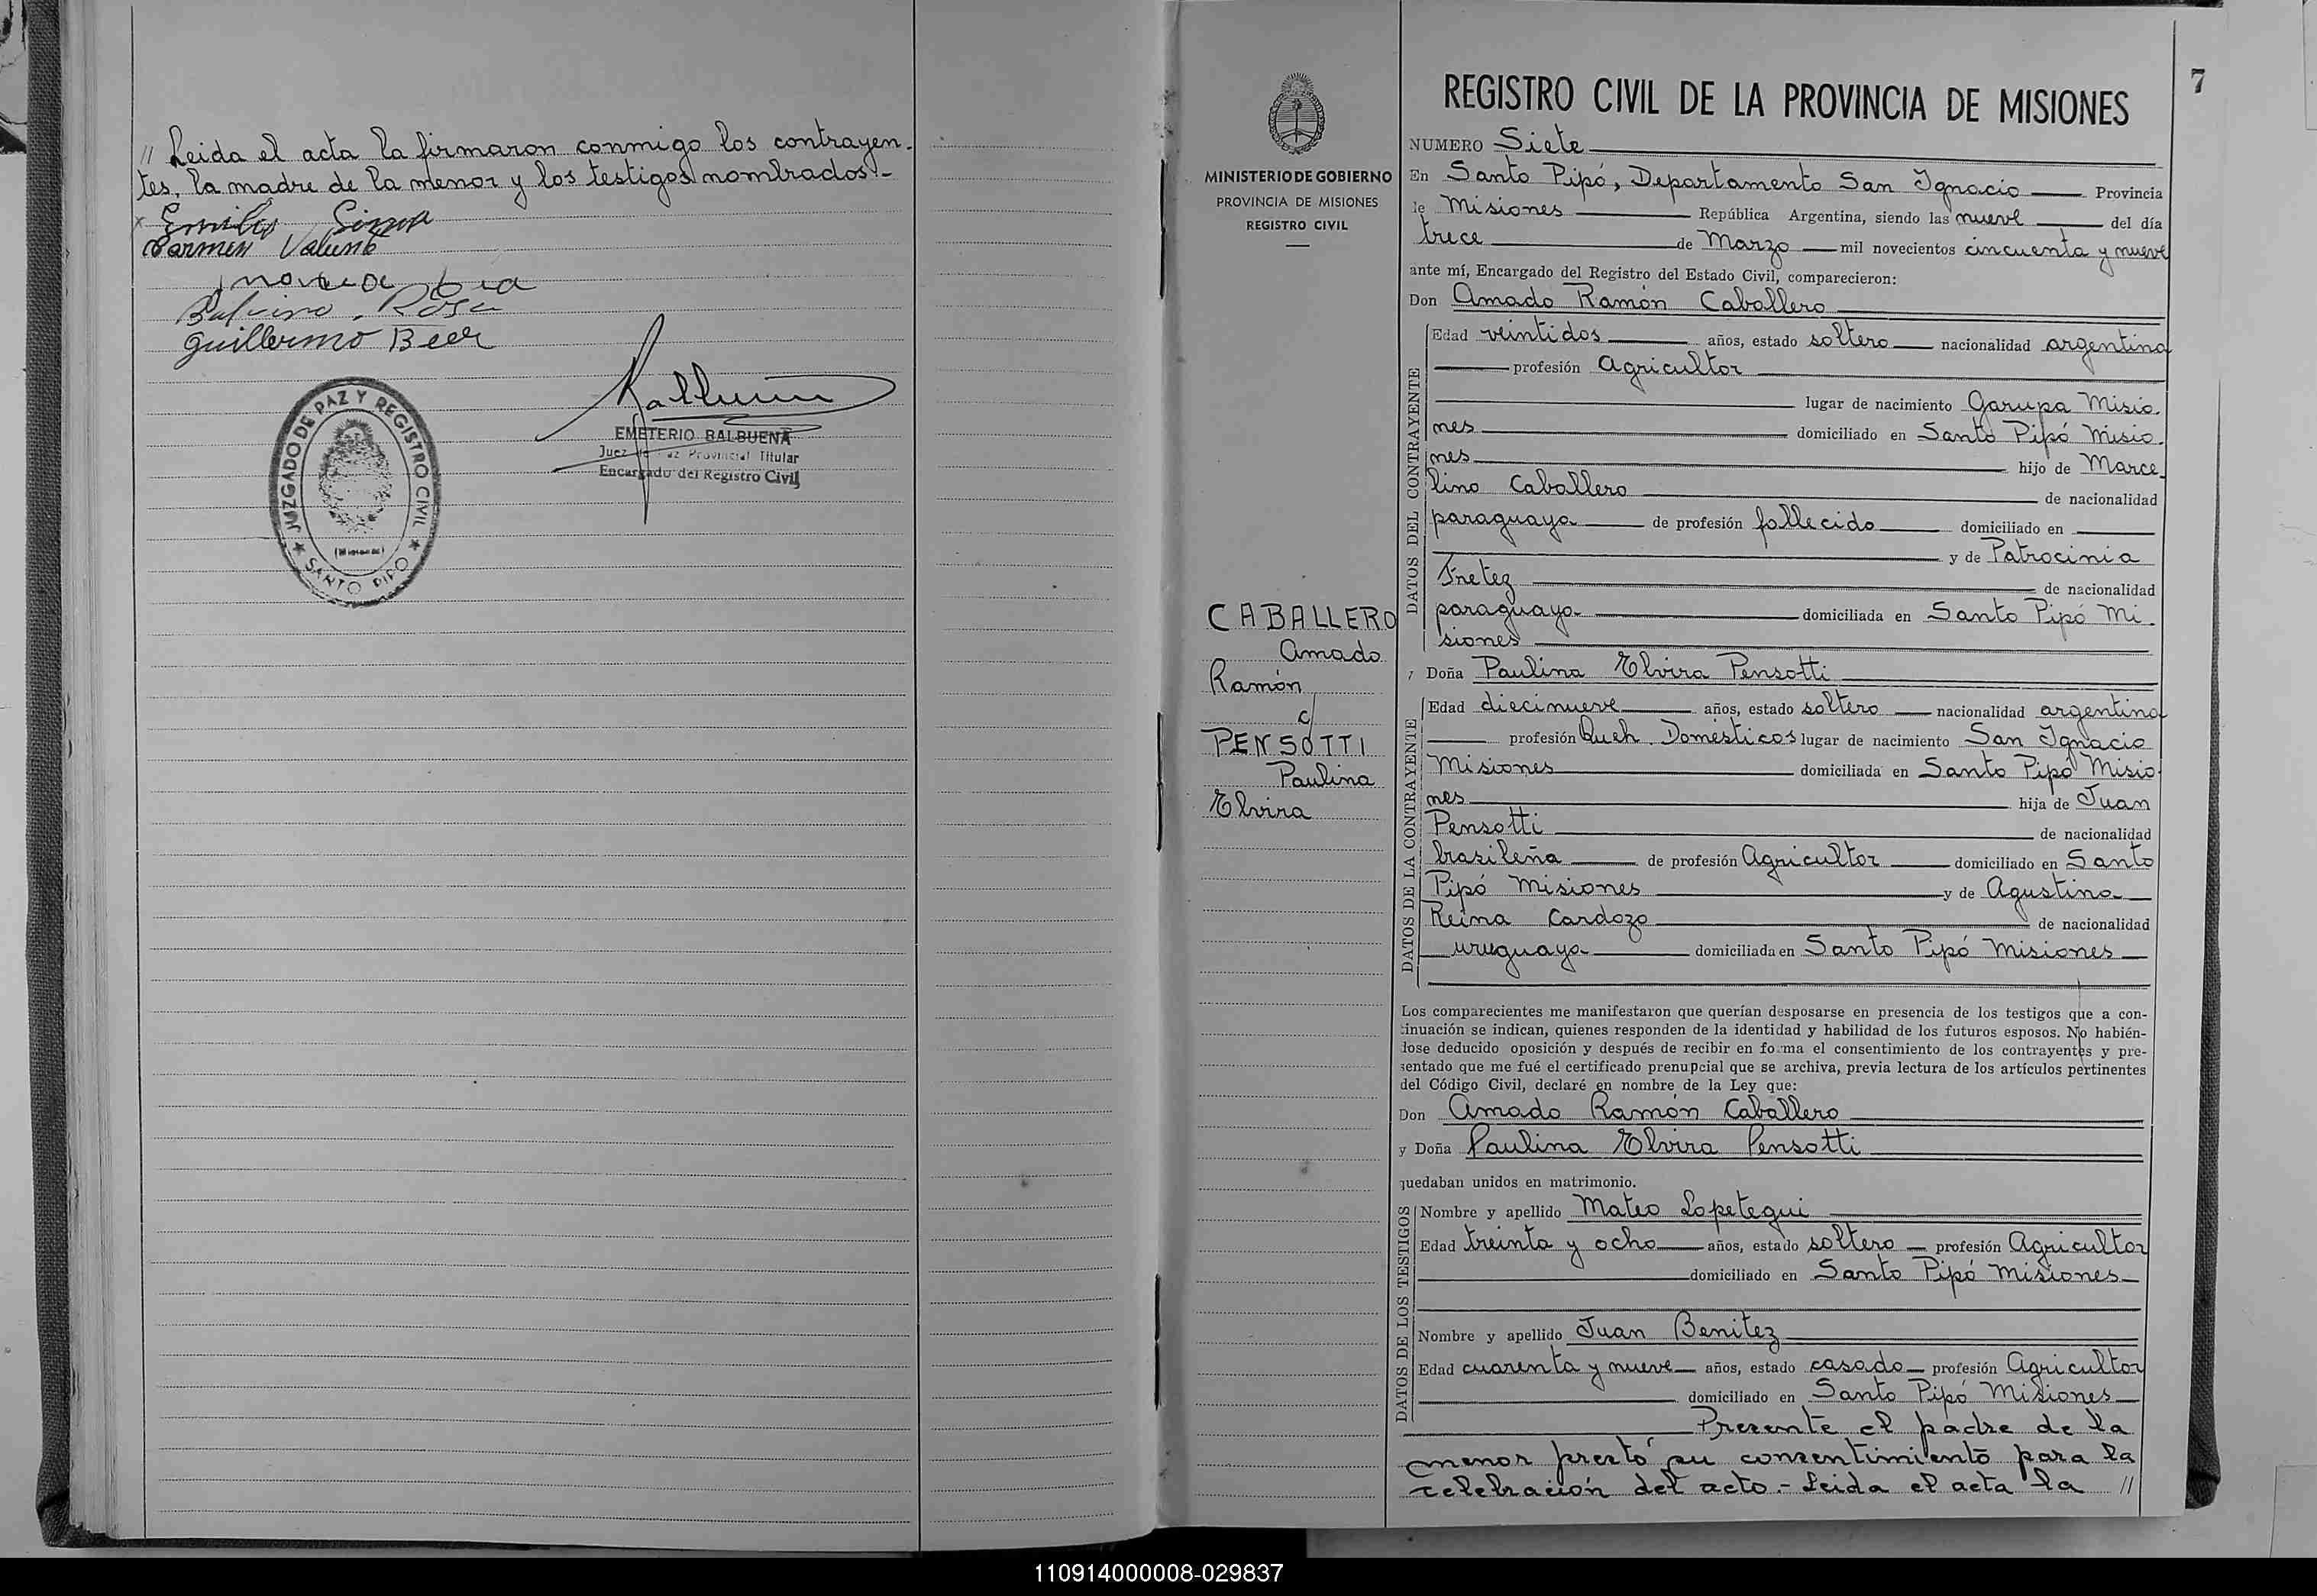 // Leida el acta la firmaron conmigo los contrayen-
tes, la madre de la menor y los testigos nombrados.-
Carmen
Rosa
Guillermo Beer
JUZGADO DE PAZ Y REGISTRO CIVIL
SANTO PIPO
EMETERIO BALBUENA
Juez de Paz Provincial Titular
Encargado del Registro Civil
7
MINISTERIO DE GOBIERNO
PROVINCIA DE MISIONES
REGISTRO CIVIL
CABALLERO
Amado
Ramón
c/
PENSOTTI
Paulina
Elvira
REGISTRO CIVIL DE LA PROVINCIA DE MISIONES
NUMERO Siete
En Santo Pipó, Departamento San Ignacio Provincia
de Misiones República Argentina, siendo las nueve del día
trece de Marzo mil novecientos cincuenta y nueve
ante mí, Encargado del Registro del Estado Civil, comparecieron:
Don Amado Ramón Caballero
DATOS DEL CONTRAYENTE
Edad veintidos años, estado soltero nacionalidad argentina
profesión Agricultor
lugar de nacimiento Garupa Misio-
nes domiciliado en Santo Pipó Misio-
nes hijo de Marce-
lino Caballero de nacionalidad
paraguaya de profesión fallecido domiciliado en
y de Patrocinia
de nacionalidad
paraguaya domiciliada en Santo Pipó Mi-
siones
y Doña Paulina Elvira Pensotti
DATOS DE LA CONTRAYENTE
Edad diecinueve años, estado soltera nacionalidad argentina
profesión Queh. Domésticos lugar de nacimiento San Ignacio
Misiones domiciliada en Santo Pipó Misio-
nes hija de Juan
Pensotti de nacionalidad
brasileña de profesión Agricultor domiciliado en Santo
Pipó Misiones y de Agustina
Reina Cardozo de nacionalidad
uruguaya domiciliada en Santo Pipó Misiones
Los comparecientes me manifestaron que querían desposarse en presencia de los testigos que a con-
tinuación se indican, quienes responden de la identidad y habilidad de los futuros esposos. No habién-
dose deducido oposición y después de recibir en forma el consentimiento de los contrayentes y pre-
sentado que me fué el certificado prenupcial que se archiva, previa lectura de los artículos pertinentes
del Código Civil, declaré en nombre de la Ley que:
Don Amado Ramón Caballero
y Doña Paulina Elvira Pensotti
quedaban unidos en matrimonio.
DATOS DE LOS TESTIGOS
Nombre y apellido Mateo Lopetegui
Edad treinta y ocho años, estado soltero profesión Agricultor
domiciliado en Santo Pipó Misiones
Nombre y apellido Juan Benitez
Edad cuarenta y nueve años, estado casado profesión Agricultor
domiciliado en Santo Pipó Misiones
Presente el padre de la
menor prestó su consentimiento para la
celebración del acto.- Leida el acta la //
110914000008-029837